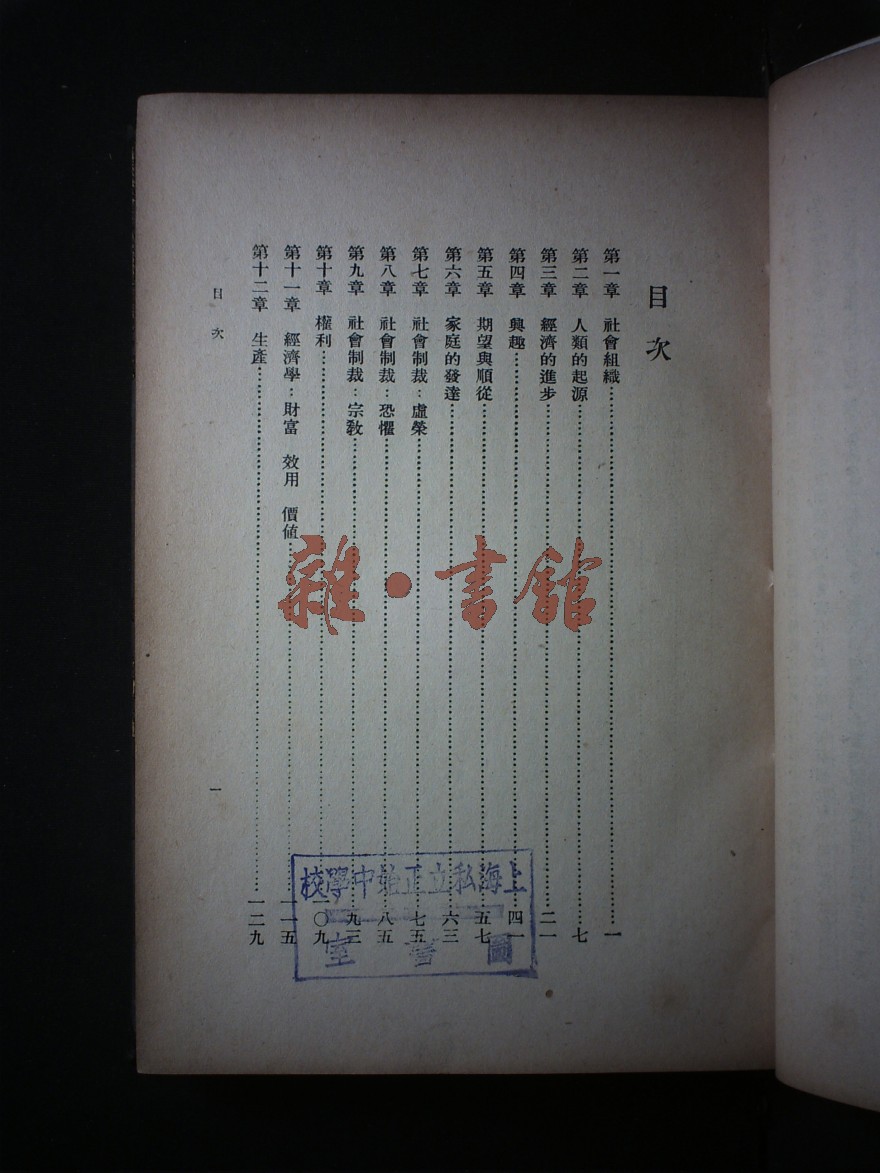 目次
第一章　社會組織…………一
第二章　人類的起源…………七
第三章　經濟的進步…………二一
第四章　興趣…………四一
第五章　期望與順從…………五七
第六章　家庭的發達…………六三
第七章　社會制裁：虛榮…………七五
第八章　社會制裁：恐懼…………八五
第九章　社會制裁：宗教…………九三
第十章　權利…………一〇九
第十一章　經濟學：財富　效用　價値…………一一五
第十二章　生產…………一二九
目次
一
雜·書館
上海私立正始中學校
圖書室